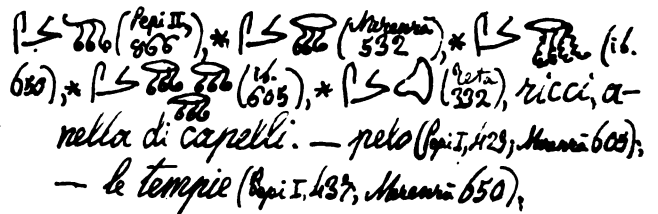 (Pepi II, 866), * (Merenrā 532), * (ib.
650), * (ib. 605), * (Teta 332), ricci, a-
nella di capelli. — pelo (Pepi I, 429; Merenrā 605);
— le tempie (Pepi I, 437, Merenrā 650),